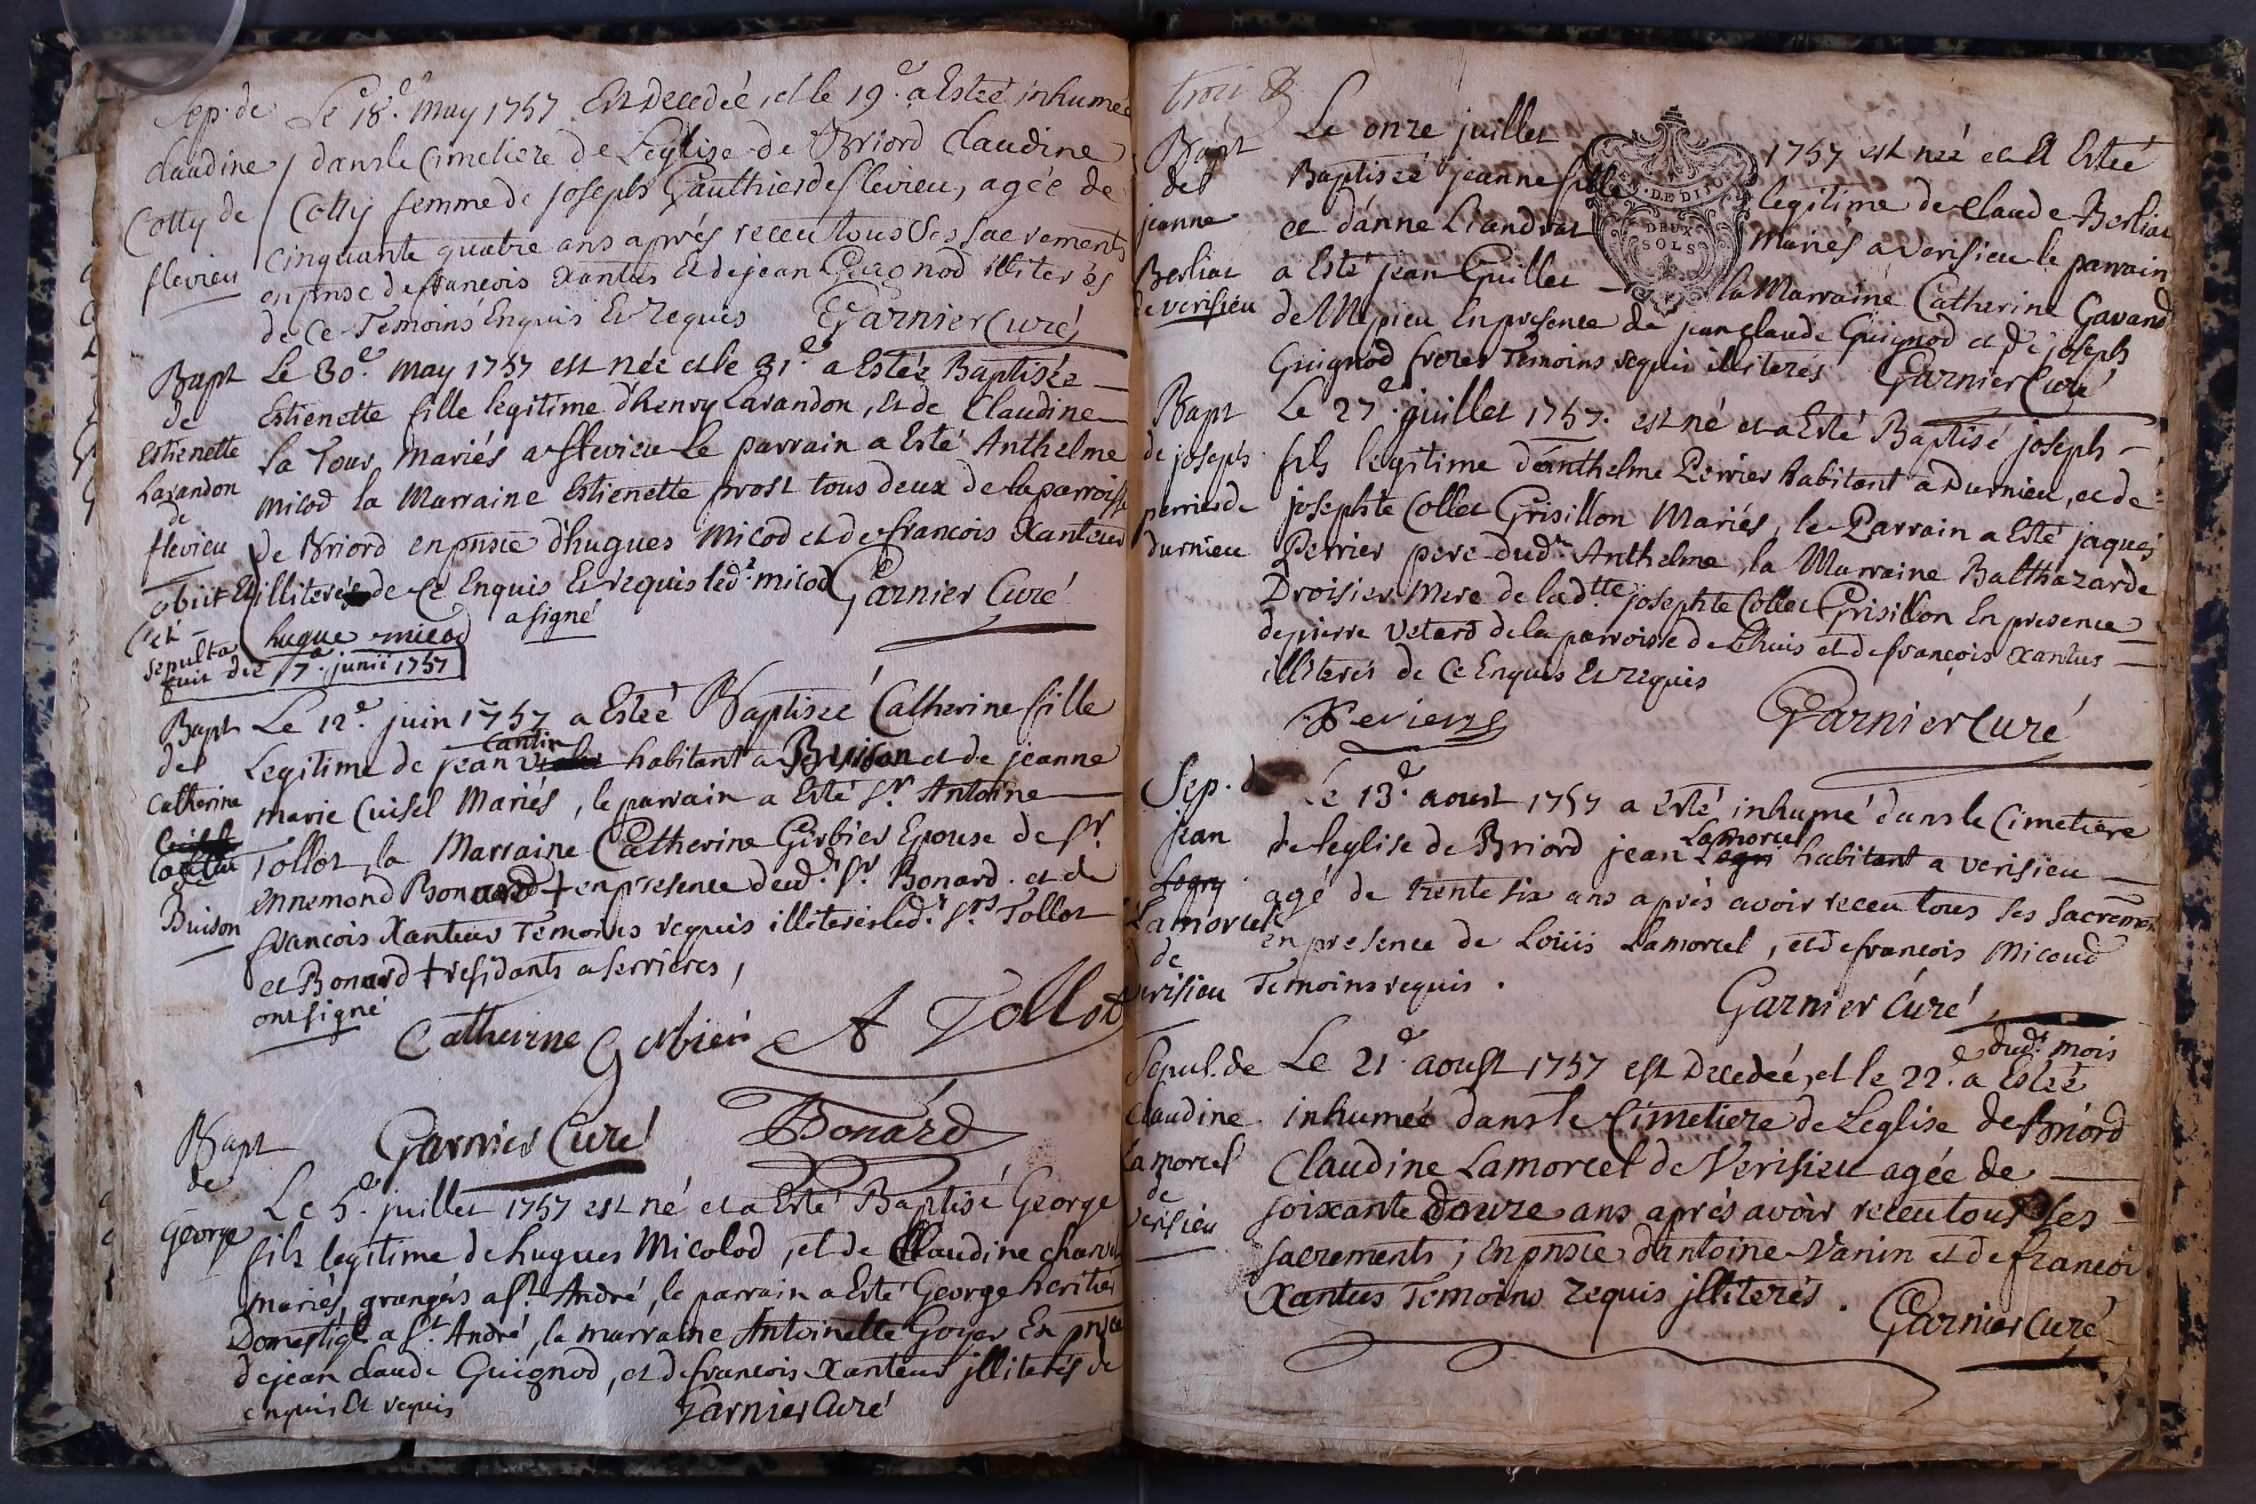 Sep. de
Claudine
Cotty de
flevieu
Le 18.e may 1757 Est Decedée, et le 19.e a Esteé inhumée
dans le Cimetiere de Leglise de Briord Claudine
Cotty femme de joseph Gauthier de flevieu, agée de
Cinquante quatre ans aprés receu tous Ses sacrements
en pnse de francois Xantus Et de jean Guignod illiterés
de Ce Temoins Enquis Et Requis Garnier Curé
Bapt
de
Estienette
Larandon
de
flevieu
Le 30.e may 1757 est née et le 31.e a Esteé Baptisée
Estienette fille legitime d'henry Larandon, Et de Claudine
la Tour Mariés a flevieu le parrain a Esté Anthelme
Micod la Marraine Estienette prost tous deux de la parroisse
de Briord en pnsce d'hugues Micod et de francois Xanteur
illiterés de Ce Enquis Et requis led.t micod Garnier Curé
a signé
hugue micod
obiit Et
sepulta
fuit die 17.a junii 1757
Bapt
de
Catherine
Buison
Le 12.e juin 1757 a Esteé Baptiseé Catherine fille
Cantin
Legitime de jean habitant a Buison et de jeanne
marie Cuisel Mariés, le parrain a Esté Sr. Antoine
Tollot, la Marraine Catherine Girbier Epouse de Sr.
ennemond Bonard + en presence deud.t Sr. Bonard et de
francois Xanteur Temoins requis illiterés led.t Srs. Tollot
et Bonard + residants a serrieres,
ont signé
Catherine Gerbier A Tollot
Garnier Curé Bonard
Bapt
de
George
Le 5.e juillet 1757 est né et a Esté Baptisé George
fils legitime de hugues Micolod, et de Claudine
mariés, grangers a St. André, le parrain a Esté George heritier
Domestiq a St. André, la marraine Antoinette Goyer En pnsce
de jean claude Guignod, et de francois Xanteur jlliterés de
enquis Et requis Garnier Curé
Bapt
de
jeanne
Berliat
de verisieu
Le onze juillet 1757 est neé et A Esteé
Baptiseé jeanne fille legitime de Claude Berliat
et d'anne Liandrat Mariés a verisieu le parrain
a Esté jean Guillet la Marraine Catherine Gavand
de Mepieu En presence de jean claude Guignod et de joseph
Guignod freres Temoins requis illiterés Garnier Curé
GEN. DE DIJON
DEUX
SOLS
Bapt
de joseph
perrier de
durnieu
Le 27.e juillet 1757. est né et a Esté Baptisé joseph
fils legitime d'anthelme Perrier habitant a Durnieu, et de
josephte Collet Grisillon Mariés, le Parrain a Esté jaques
Perrier pere dud.t Anthelme, la Marraine Balthazarde
Droisier Mere de lad.tte josephte Collet Grisillon En presence
de pierre Vetard de la parroisse de Lhuis et de francois Xantus
illiterés de Ce Enquis Et requis
Garnier Curé
Sep. de
jean
Logry
Lamorcel
de
verisieu
Le 13.e aoust 1757 a Esté inhumé dans le Cimetiere
Lamorcel
de leglise de Briord jean habitant a verisieu
agé de trente six ans après avoir receu tous ses sacremens
en presence de Loüis Lamorcel, et de francois Micoud
Temoins requis.
Garnier Curé
Sepul. de
Claudine
Lamorcel
de
verisieu
dud.t mois
Le 21.e aoust 1757 est Decedeé, et le 22.e a Esteé
inhumeé dans le Cimetiere de Leglise de Briord
Claudine Lamorcel de Verisieu agée de
soixante Douze ans aprés avoir receu tous Ses
sacrements; En pnsce d'antoine Vanin et de francois
Xantus Temoins requis jlliterés. Garnier Curé